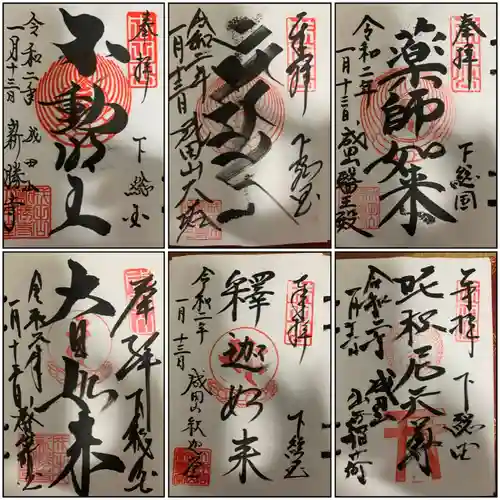 奉拝
下総国
不動明王
令和二年
一月十三日
成田山
新勝寺
奉拝
下総国
令和二年
一月十三日
成田山
奉拝
下総国
薬師如来
令和二年
一月十三日
成田山
醫王殿
奉拝
下総国
大日如来
令和二年
一月十三日
奉拝
下総国
釋迦如来
令和二年
一月十三日
成田山
釈迦堂
奉拝
下総国
吒枳尼天尊
令和二年
一月十三日
成田山